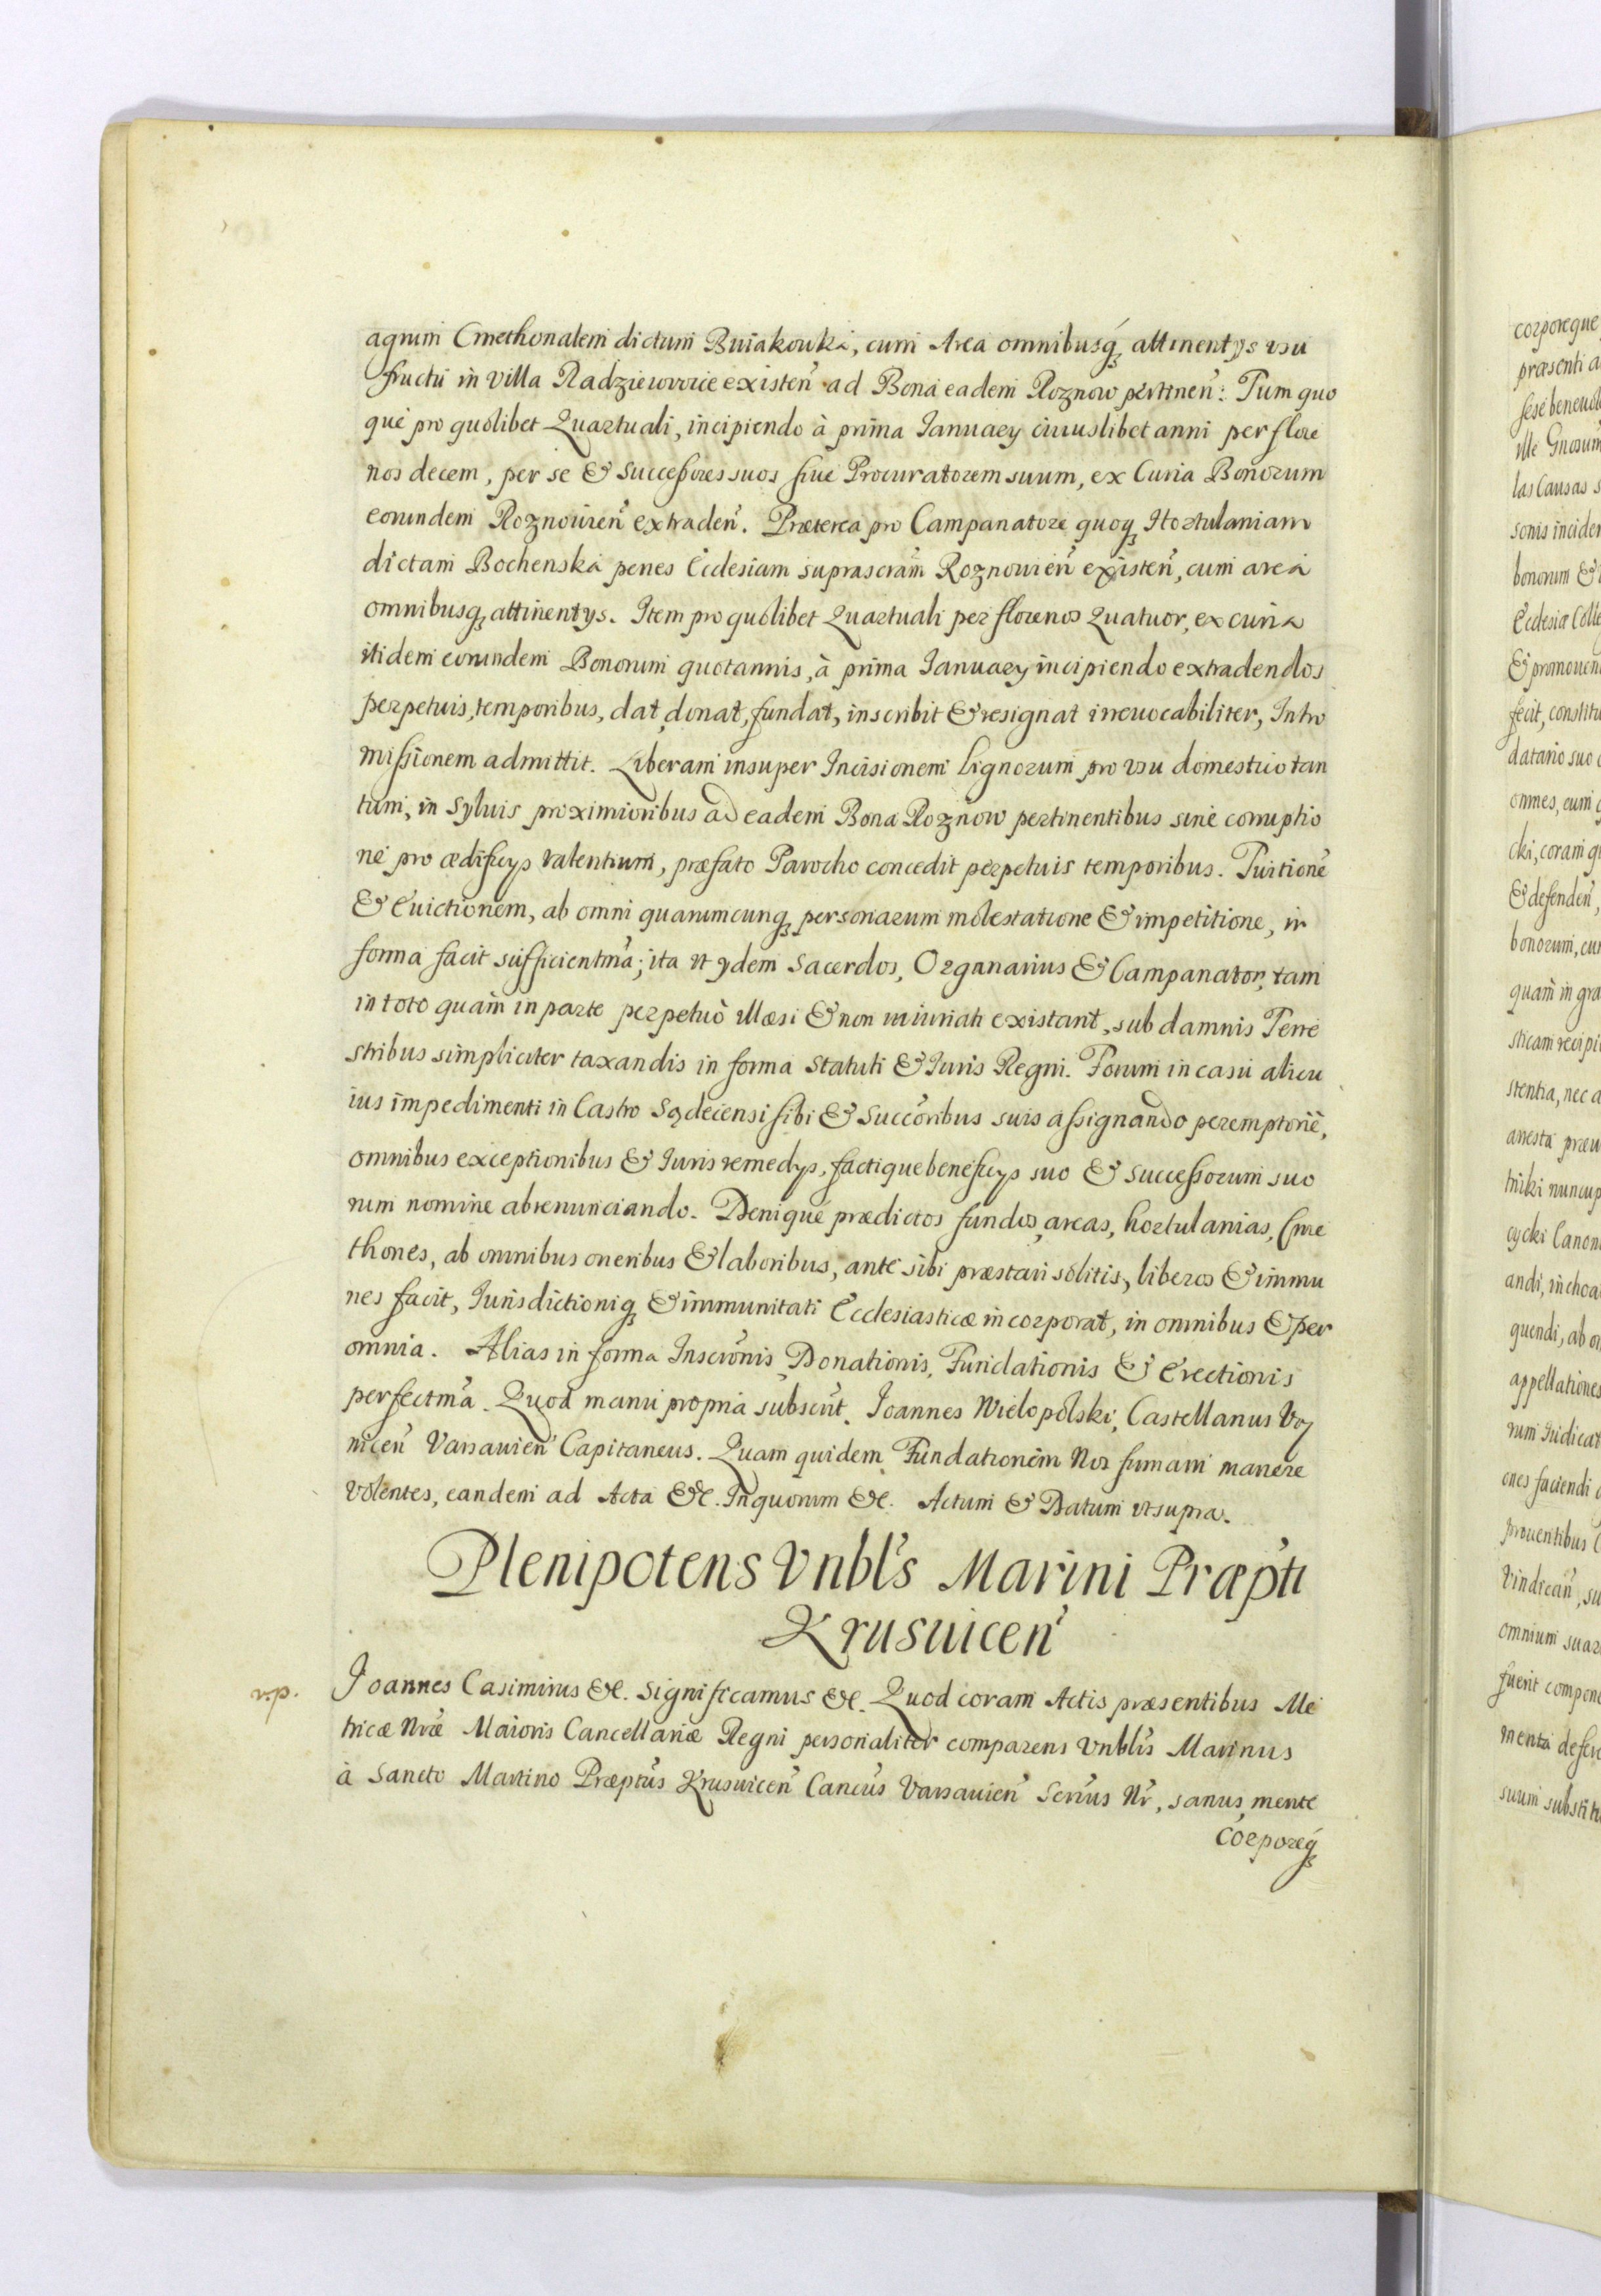 agrum Cmethonalem dictum Buiakouka, cum Area omnibusq attinentys vsu
fructu in villa Radziewowie existen ad Bona eadem Roznow pertinen: Tum quo
que pro quolibet Quartuali, incipiendo à prima January cuiuslibet anni per flore
nos decem, per se & Successores suos siue Procuratorem suum, ex Curia Bonorum
eorundem Roznouien extraden. Præterea pro Campanatore quoq Hortulaniam
dictam Bochenska penes Ecclesiam suprascram Roznouien existen, cum area
omnibusq attinentys. Item pro quolibet Quartuali per florenos Quatuor, ex curia
itidem eorundem Bonorum quotannis, à prima January incipiendo extradendos
perpetuis, temporibus, dat, donat, fundat, inscribit & resignat irreuocabiliter, Intro
missionem admittit. Liberam insuper Incisionem Lignorum pro vsu domestico tan
tum, in Syluis proximioribus ad eadem Bona Roznow pertinentibus sine corruptio
ne pro ædificys valentium, præfato Parocho concedit perpetuis temporibus. Tuitione
& Euictionem, ab omni quarumcunq personarum molestatione & impetitione, in
forma facit sufficientma; ita vt ydem Sacerdos, Organarius & Campanator, tam
in toto quam in parte perpetuò illæsi & non iniuriati existant, sub damnis Terre
stribus simpliciter taxandis in forma Statuti & Iuris Regni. Forum in casu alicu
ius impedimenti in Castro Sądecensi sibi & Succoribus suis assignando peremptorie,
omnibus exceptionibus & Iuris remedys, factique beneficys suo & Successorum suo
rum nomine abrenunciando. Denique prædictos fundos, areas, hortulanias, Cme
thones, ab omnibus oneribus & laboribus, ante sibi præstari solitis, liberos & immu
nes facit, Iurisdictioniq & immunitati Ecclesiasticæ incorporat, in omnibus & per
omnia. Alias in forma Inscronis, Donationis, Fundationis & Erectionis
perfectma. Quod manu propria subscrit. Ioannes Wielopolski, Castellanus Voy
nicen Varsauien Capitaneus. Quam quidem Fundationem Nos fumam manere
volentes, eandem ad Acta &c. In quorum &c. Actum & Datum vt supra.
Plenipotens Vnbls Marini Præpti
Krusuicen
v.p. Ioannes Casimirus &c. significamus &c. Quod coram Actis præsentibus Me
tricæ Nræ Maioris Cancellariæ Regni personaliter comparens Vnblis Marinus
à Sancto Martino Præptus Krusuicen Cancus Varsauien Serius Nr, sanus mente
Corporeq